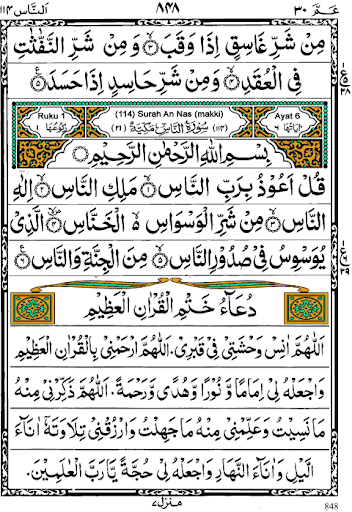 اَلنَّاس ١١٤
٨٤٨
عَمَّ ٣٠
مِنْ شَرِّ غَاسِقٍ اِذَا وَقَبَ ۙ﴿٣﴾ وَ مِنْ شَرِّ النَّفّٰثٰتِ
فِى الْعُقَدِ ۙ﴿٤﴾ وَ مِنْ شَرِّ حَاسِدٍ اِذَا حَسَدَ ﴿٥﴾
Ruku 1
(114) Surah An Nas (makki)
Ayat 6
رُكُوْعُهَا ١
(٢١) سُوْرَةُ النَّاسِ مَكِّيَّةٌ (١١٤)
اٰيَاتُهَا ٦
بِسْمِ اللّٰهِ الرَّحْمٰنِ الرَّحِيْمِ
قُلْ اَعُوْذُ بِرَبِّ النَّاسِ ۙ﴿١﴾ مَلِكِ النَّاسِ ۙ﴿٢﴾ اِلٰهِ
النَّاسِ ۙ﴿٣﴾ مِنْ شَرِّ الْوَسْوَاسِ ۙ۬ الْخَنَّاسِ ۙ﴿٤﴾ الَّذِىْ
يُوَسْوِسُ فِىْ صُدُوْرِ النَّاسِ ۙ﴿٥﴾ مِنَ الْجِنَّةِ وَ النَّاسِ ﴿٦﴾
دُعَآءُ خَتْمِ الْقُرْاٰنِ الْعَظِيْمِ
اَللّٰهُمَّ اٰنِسْ وَحْشَتِيْ فِيْ قَبْرِيْ. اَللّٰهُمَّ ارْحَمْنِيْ بِالْقُرْاٰنِ الْعَظِيْمِ
وَاجْعَلْهُ لِيْ اِمَامًا وَّ نُوْرًا وَّهُدًى وَّرَحْمَةً. اَللّٰهُمَّ ذَكِّرْنِيْ مِنْهُ
مَا نَسِيْتُ وَعَلِّمْنِيْ مِنْهُ مَا جَهِلْتُ وَارْزُقْنِيْ تِلَاوَتَهٗ اٰنَآءَ
الَّيْلِ وَاٰنَآءَ النَّهَارِ وَاجْعَلْهُ لِيْ حُجَّةً يَّا رَبَّ الْعٰلَمِيْنَ.
منزل ٧
848